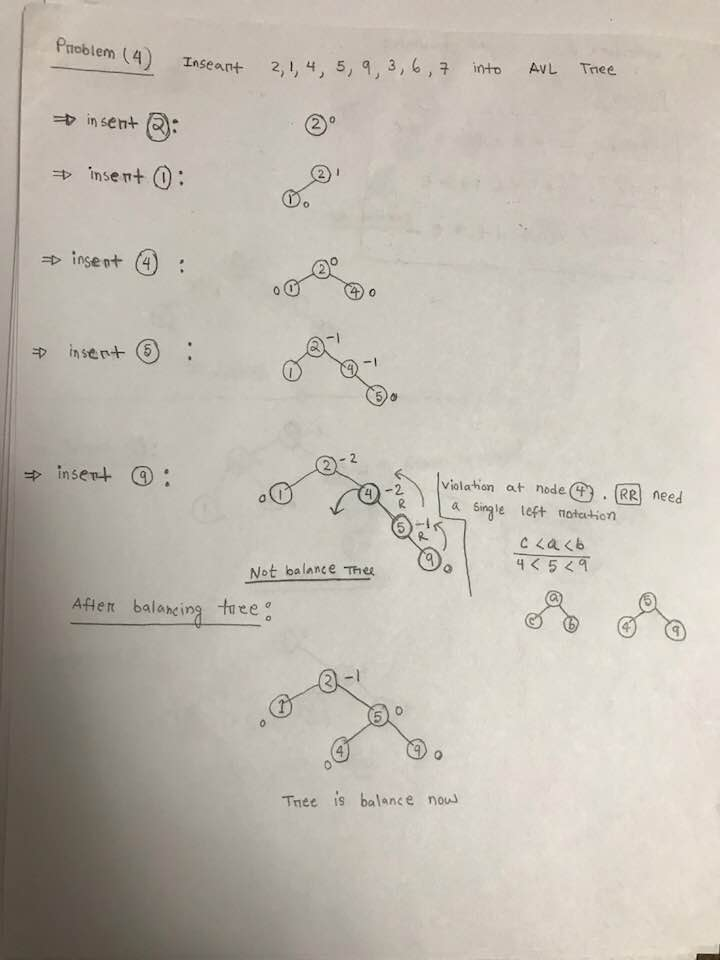 Problem (4) Inseart 2, 1, 4, 5, 9, 3, 6, 7 into AVL Tree
⇒ insert ②:
② 0
⇒ insert ①:
② 1
① 0
⇒ insert ④ :
② 0
0 ① ④ 0
⇒ insert ⑤ :
② -1
① ④ -1
⑤ 0
⇒ insert ⑨ :
② -2
0 ① ④ -2
R
⑤ -1
R
⑨ 0
Violation at node ④. RR need
a single left rotation
c < a < b
4 < 5 < 9
ⓐ
ⓒ ⓑ
⑤
④ ⑨
Not balance Tree
After balancing tree:
② -1
① ⑤ 0
0
④ ⑨ 0
0
Tree is balance now